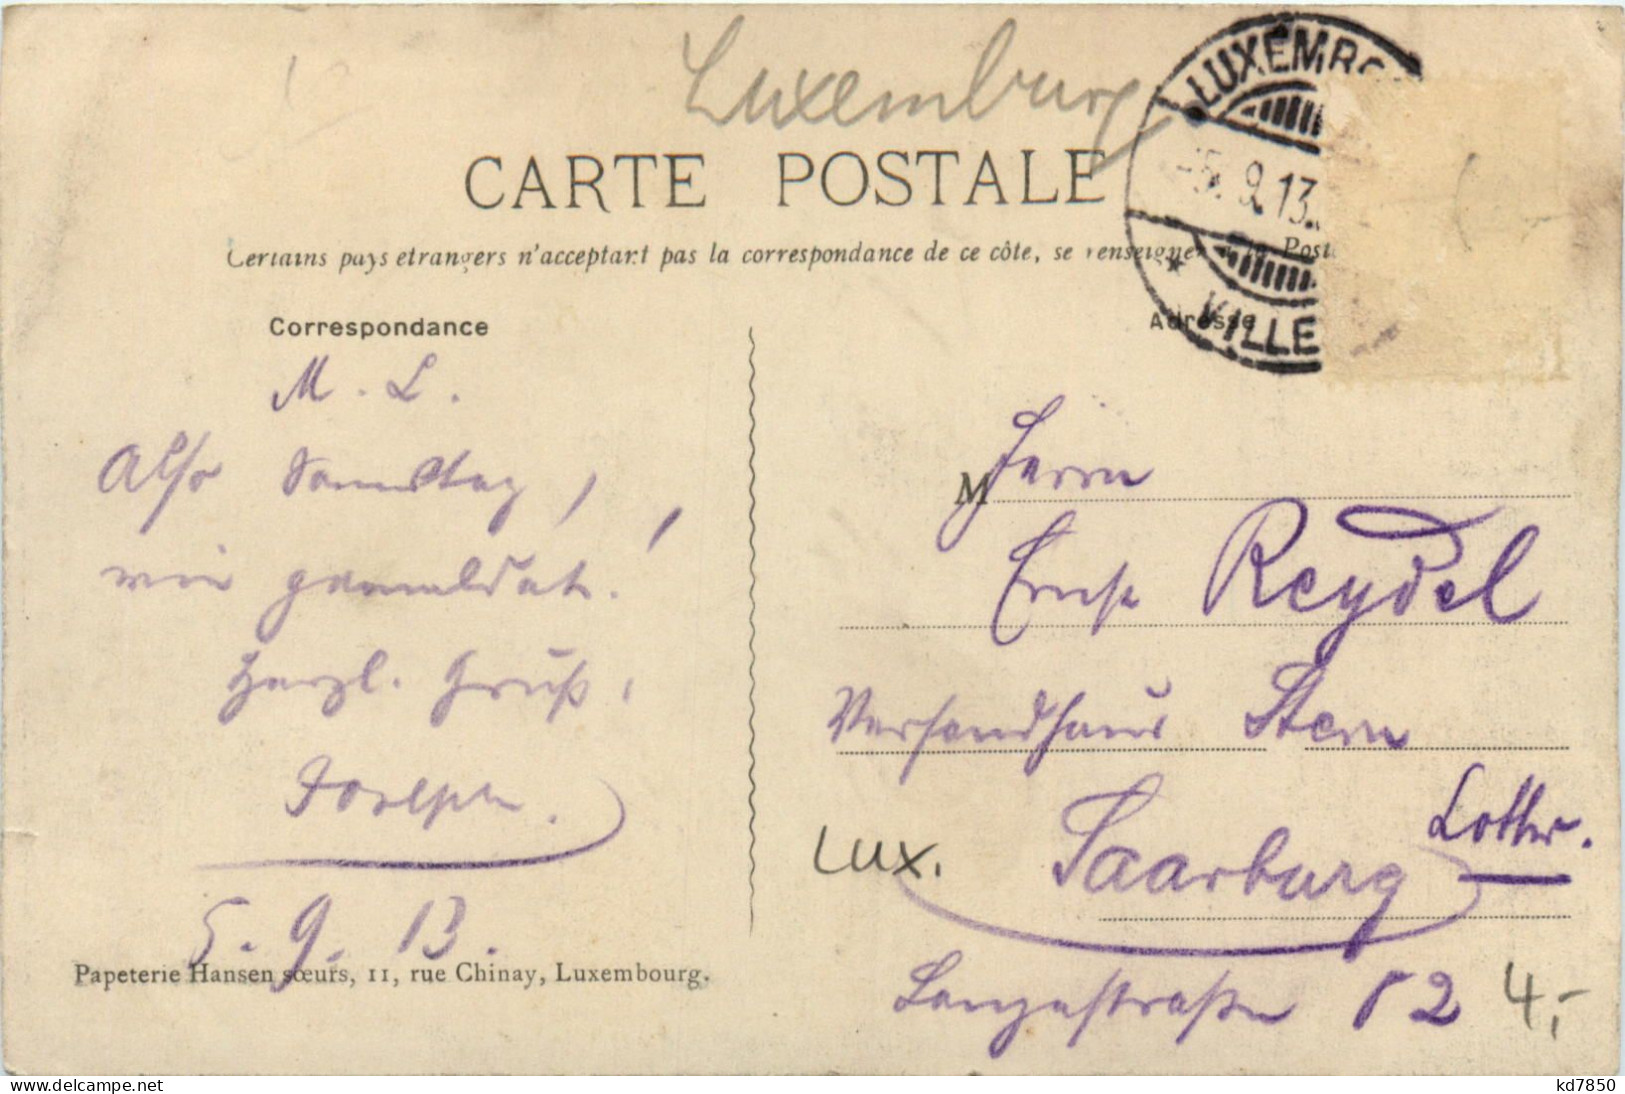 Luxemburg
LUXEMBO
-5. 9.13.
VILLE
CARTE POSTALE
Certains pays etrangers n'acceptant pas la correspondance de ce côte, se renseigner à la Poste
Correspondance
Adresse
M. L.
Also Samstag,
wie gemeldet!
Herzl. Gruß,
Joseph.
5. 9. 13.
M Herrn
Ernst Reydel
Versandhaus Stern
Saarburg Lothr.
Langestraße 82
LUX.
4,-
Papeterie Hansen sœurs, 11, rue Chinay, Luxembourg.
delcampe.net
kd7850